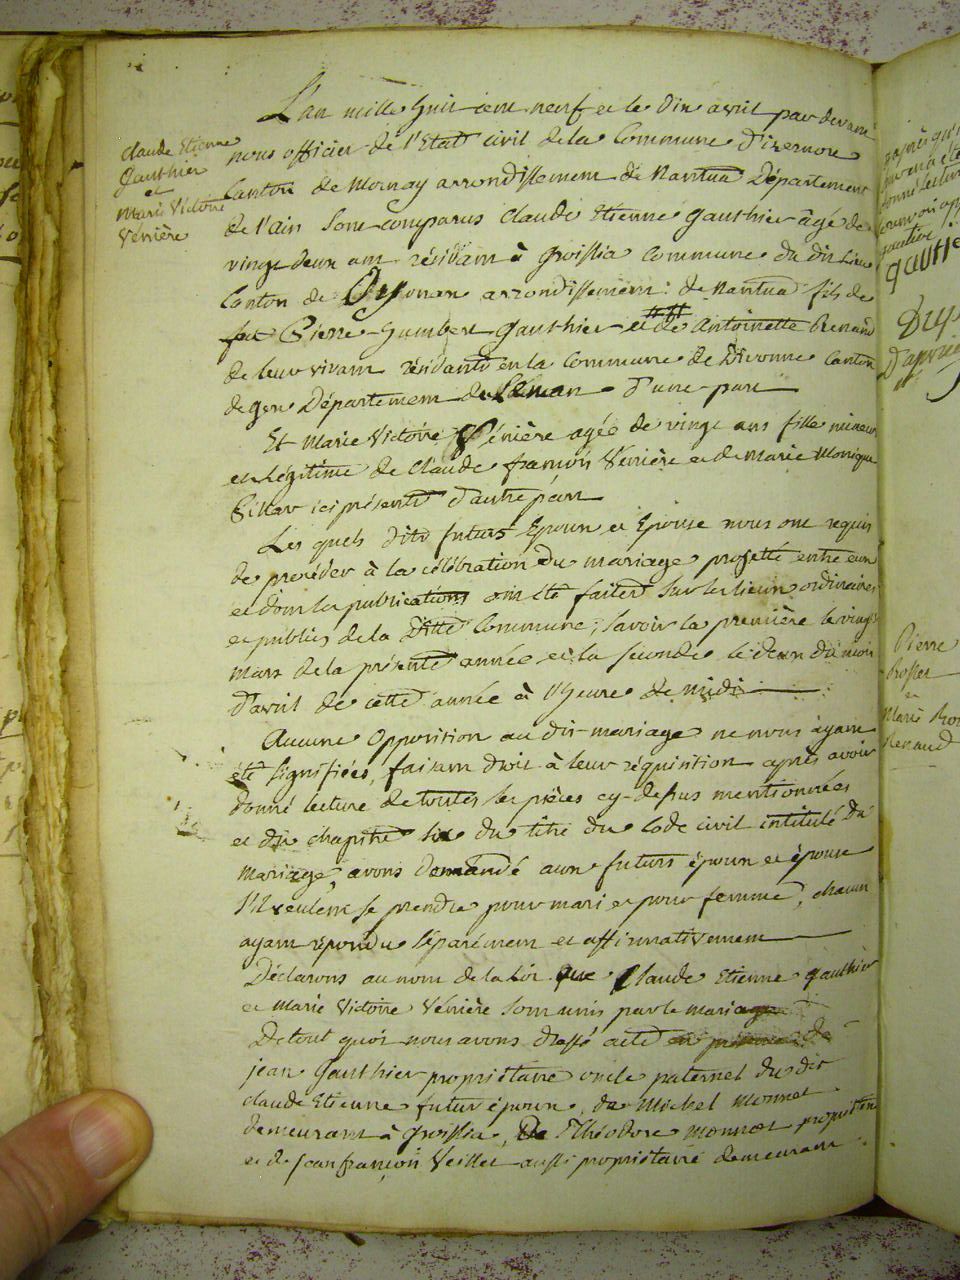 Claude Etienne
Gauthier
et
Marie Victoire
Vérière
L'an mille huit cent neuf et le dix avril par devant
nous officier de l'Etat civil de la Commune d'izernore
Canton de Mornay arrondissement de Nantua Département
de l'ain sont comparus Claude Etienne Gauthier âgé de
vingt deux ans résidant à Groissia Commune du dit Lieu
Canton de Oyonnax arrondissement de Nantua fils de
feu Pierre humbert Gauthier et de Antoinette Renaud
de leur vivant résidants en la Commune de Divonne Canton
de gex Département du Léman d'une part
Et Marie Victoire Vérière agée de vingt ans fille mineure
et légitime de Claude françois Vérière et de Marie Monique
ici présents d'autre part
Les quels dits futurs Epoux et Epouse nous ont requis
de procéder à la célébration du mariage projetté entre eux
et dont les publications ont été faites sur les lieux ordinaires
et publics de la ditte Commune; savoir la première le vingt
mars de la présente année et la seconde le deux du mois
d'avril de cette année à l'heure de midi
Aucune opposition au dit mariage ne nous ayant
été signifiées, faisant droit à leur réquisition après avoir
donné lecture de toutes les pièces cy-dessus mentionnées
et du chapitre six du titre du Code civil intitulé du
mariage, avons demandé aux futurs époux et épouse
s'il veulent se prendre pour mari et pour femme, chacun
ayant répondu séparément et affirmativement
Déclarons au nom de la loi que Claude Etienne Gauthier
et Marie Victoire Vérière sont unis par le mariage
De tout quoi nous avons dressé acte en présence de
jean Gauthier propriétaire oncle paternel du dit
Claude Etienne futur époux, de Michel Monnet
demeurant à Groissia, De Théodore Monnet propriétaire
et de Jean françois Veillet aussi propriétaire demeurant
Pierre
et
Marie
Renaud